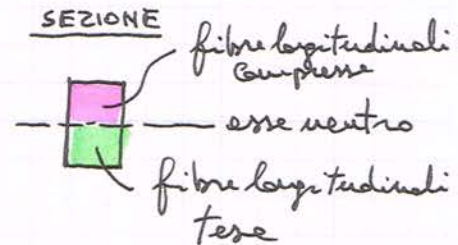 SEZIONE
fibre longitudinali
compresse
asse neutro
fibre longitudinali
tese